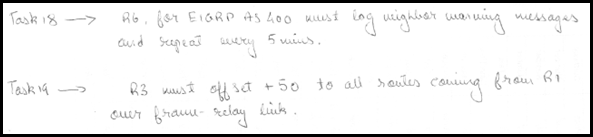 Task 18 → R6, for EIGRP AS 400 must log neighbor warning messages
and repeat every 5 mins.
Task 19 → R3 must offset +50 to all routes coming from R1
over frame-relay link.